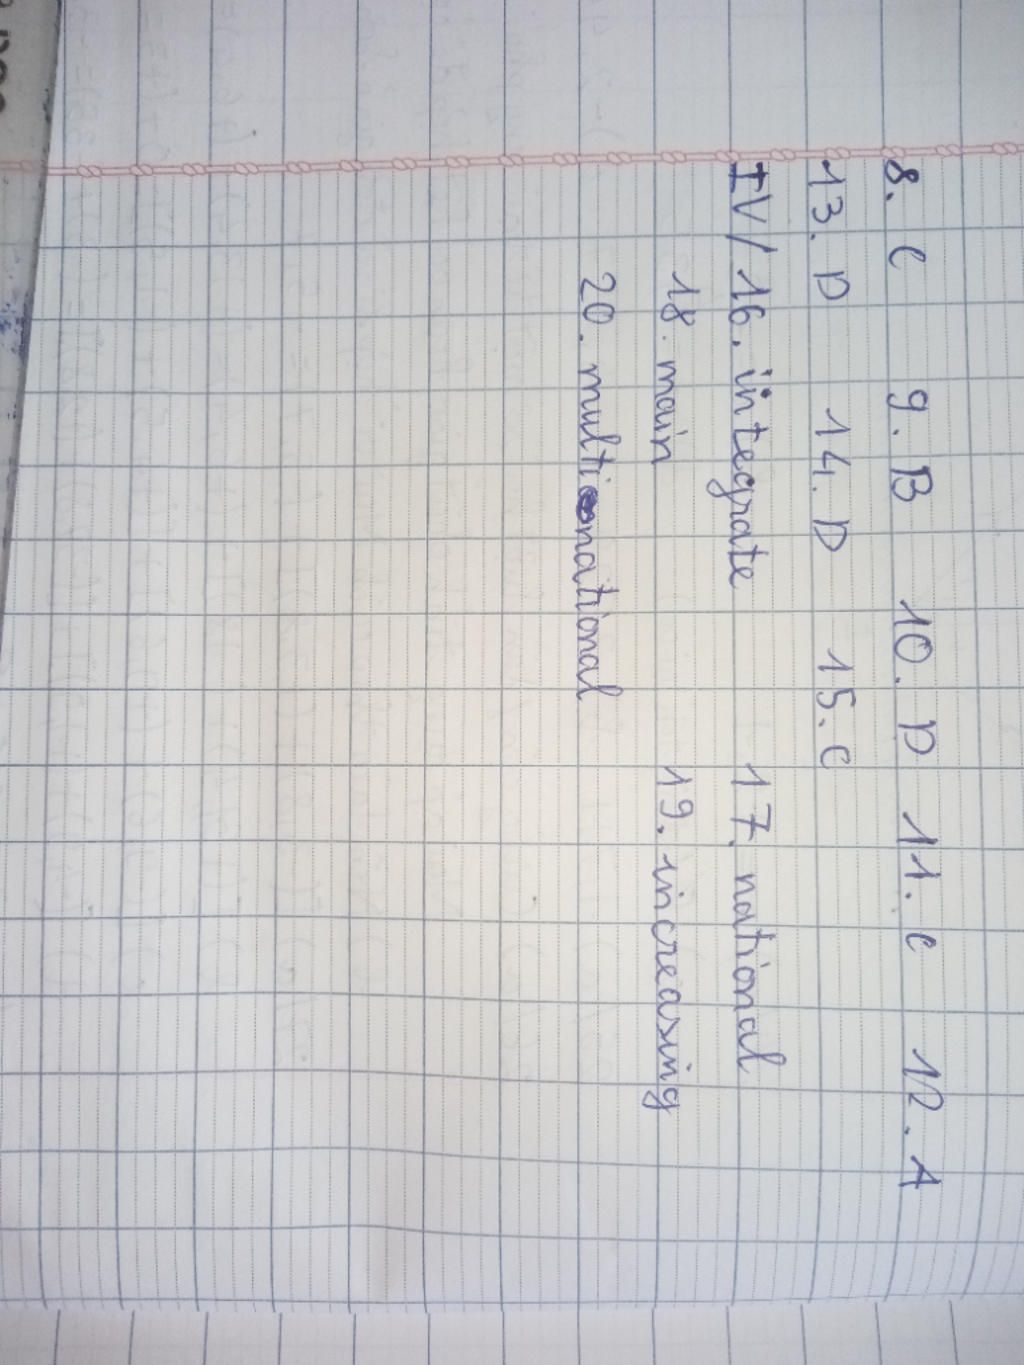 8. C 9. B 10. D 11. C 12. A
13. D 14. D 15. C
IV/ 16. integrate 17. national
18. main 19. increasing
20. multinational